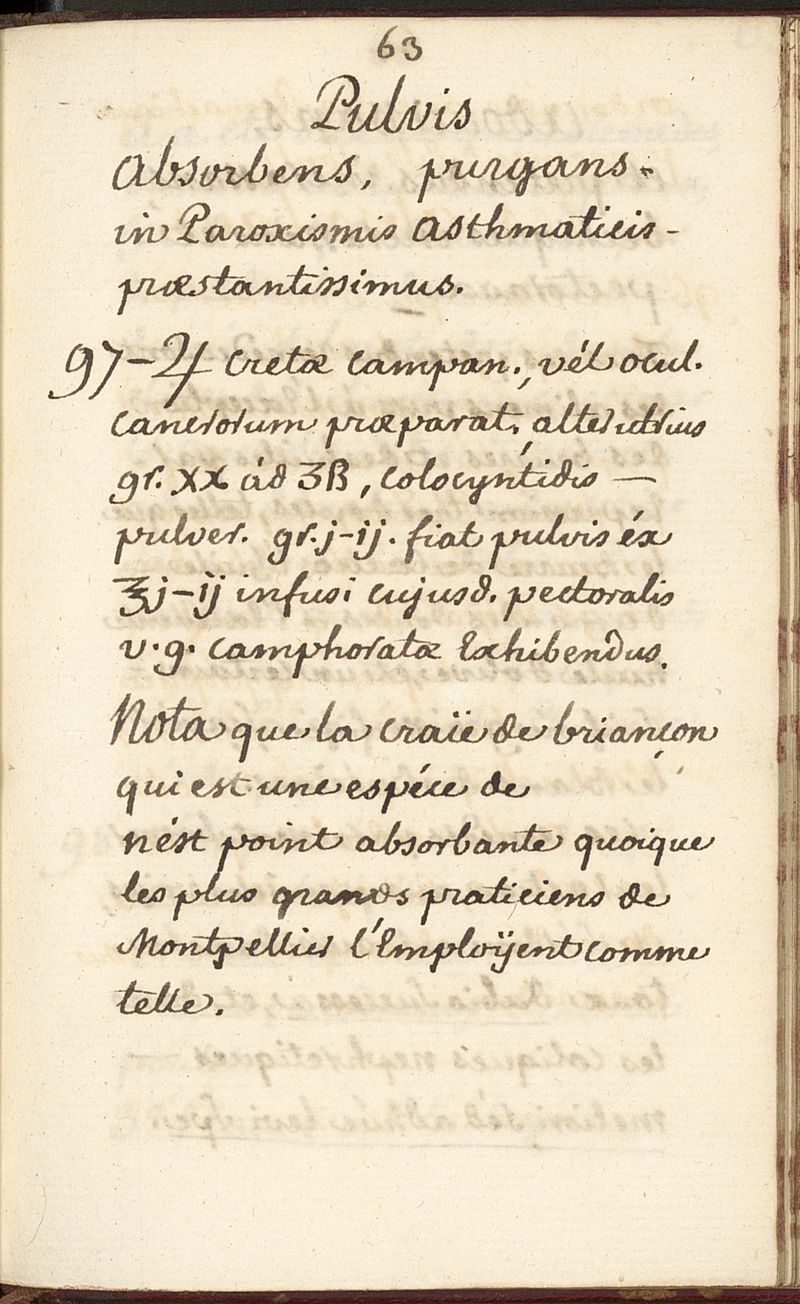 63
Pulvis
Absorbens, purgans.
in Paroxismis Asthmaticis -
præstantissimus.
97-♃ Cretæ campan., vél ocul.
cancrorum præparat, alterutrius
gr. xx ád ʒß, colocyntidis —
pulver. gr. j-ij. fiat pulvis éx
℥j-ij infusi cujusd. pectoralis
v.g. camphoratæ Exhibendus.
Nota que la craïe de briançon
qui est une espéce de
n'ést point absorbante quoique
les plus grands praticiens de
Montpellier l'Emploÿent comme
telle.